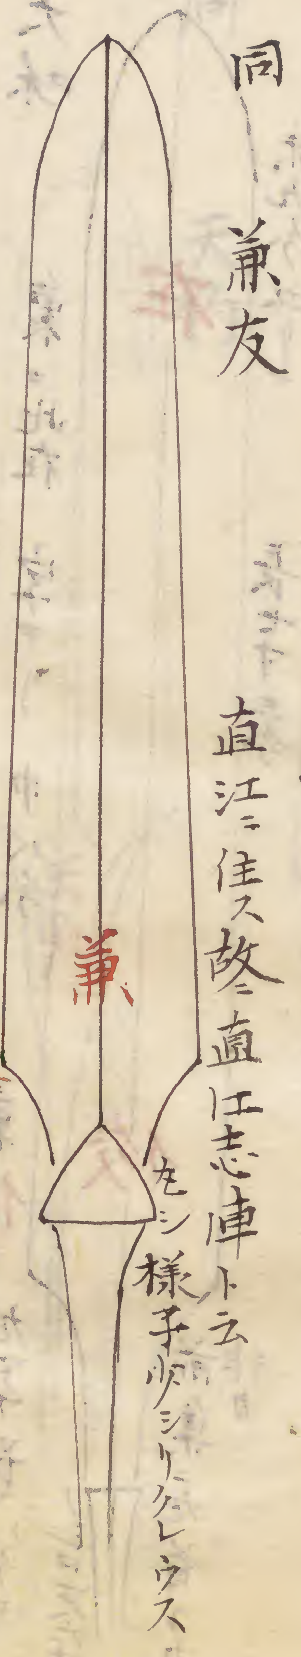 同 兼友
直江ニ住ス故ニ直江志庫ト云
丸シ 様子少シリクレウス
兼